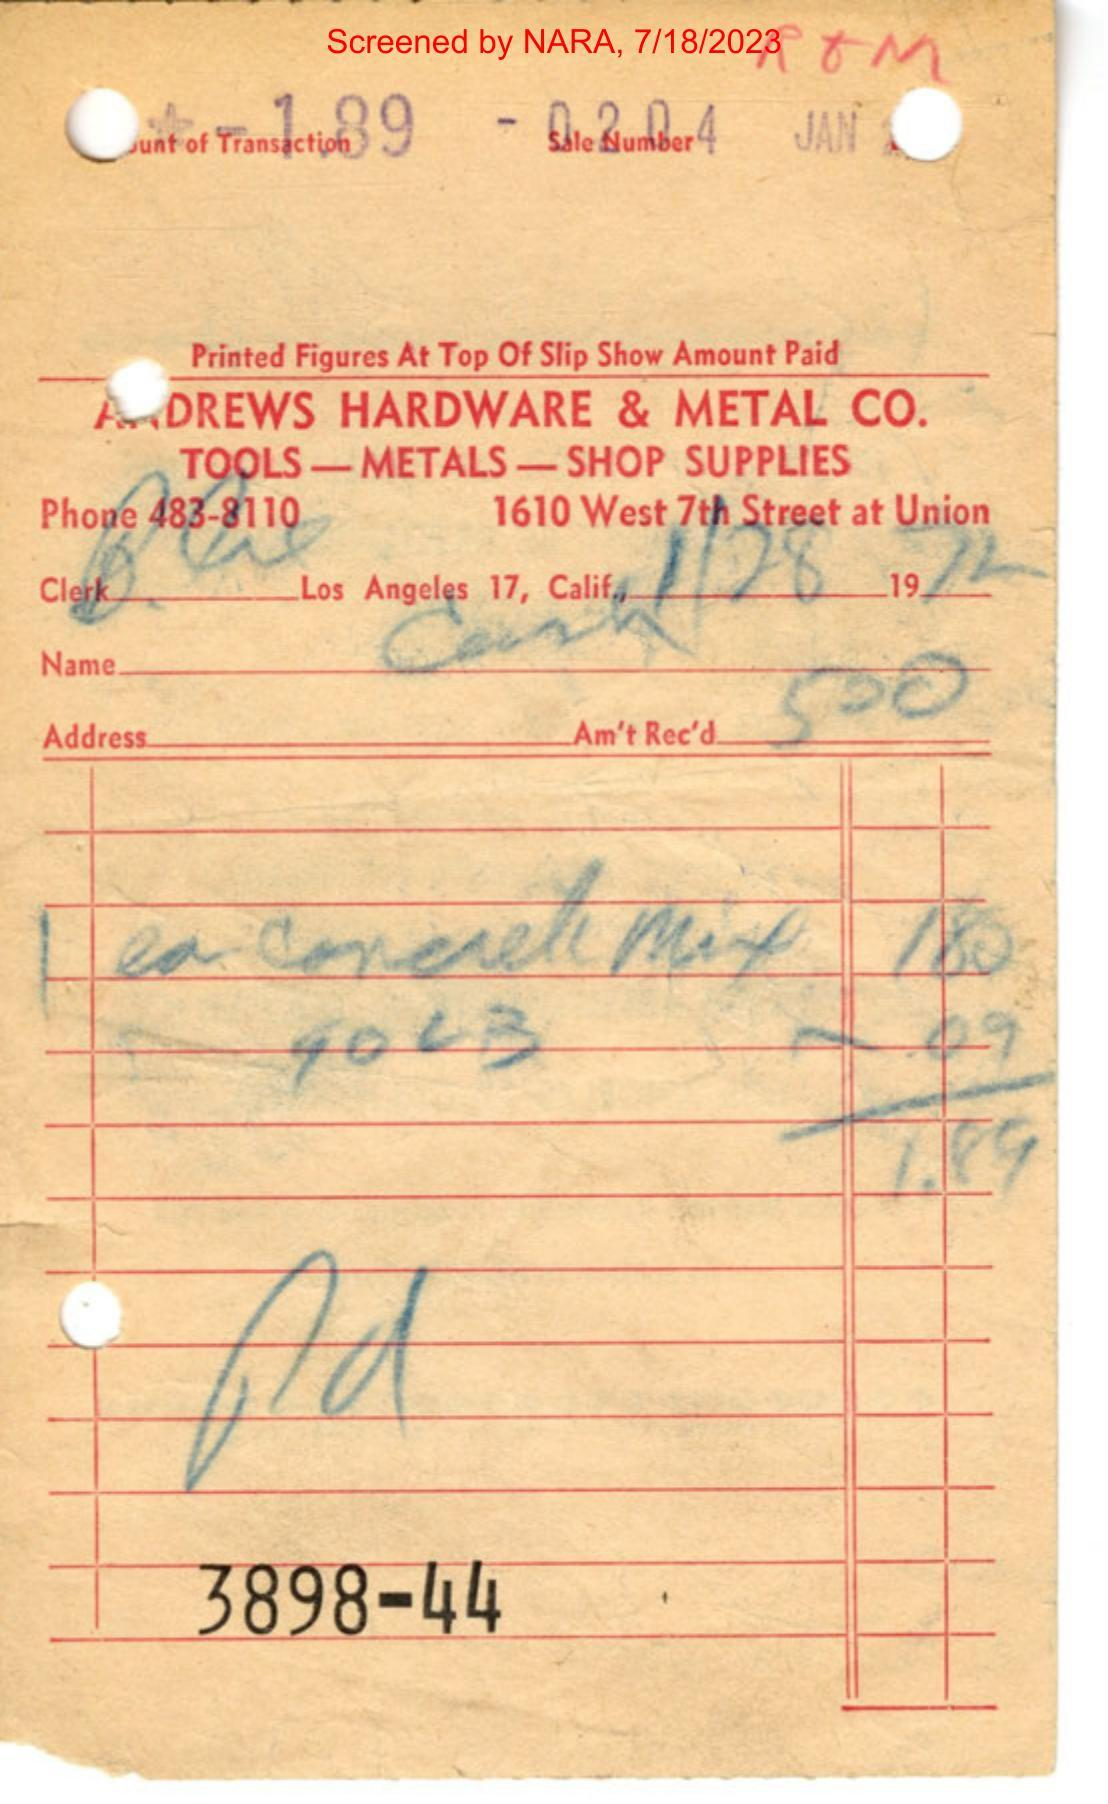 Screened by NARA, 7/18/2023
R & M
-1.89 -0204 JAN
unt of Transaction Sale Number
Printed Figures At Top Of Slip Show Amount Paid
DREWS HARDWARE & METAL CO.
TOOLS — METALS — SHOP SUPPLIES
Phone 483-8110 1610 West 7th Street at Union
Clerk Los Angeles 17, Calif., 1/28 1972
Name Cash
Address Am't Rec'd 500
1 ea Concrete Mix 180
90 LB 09
1.89
Pd
3898-44